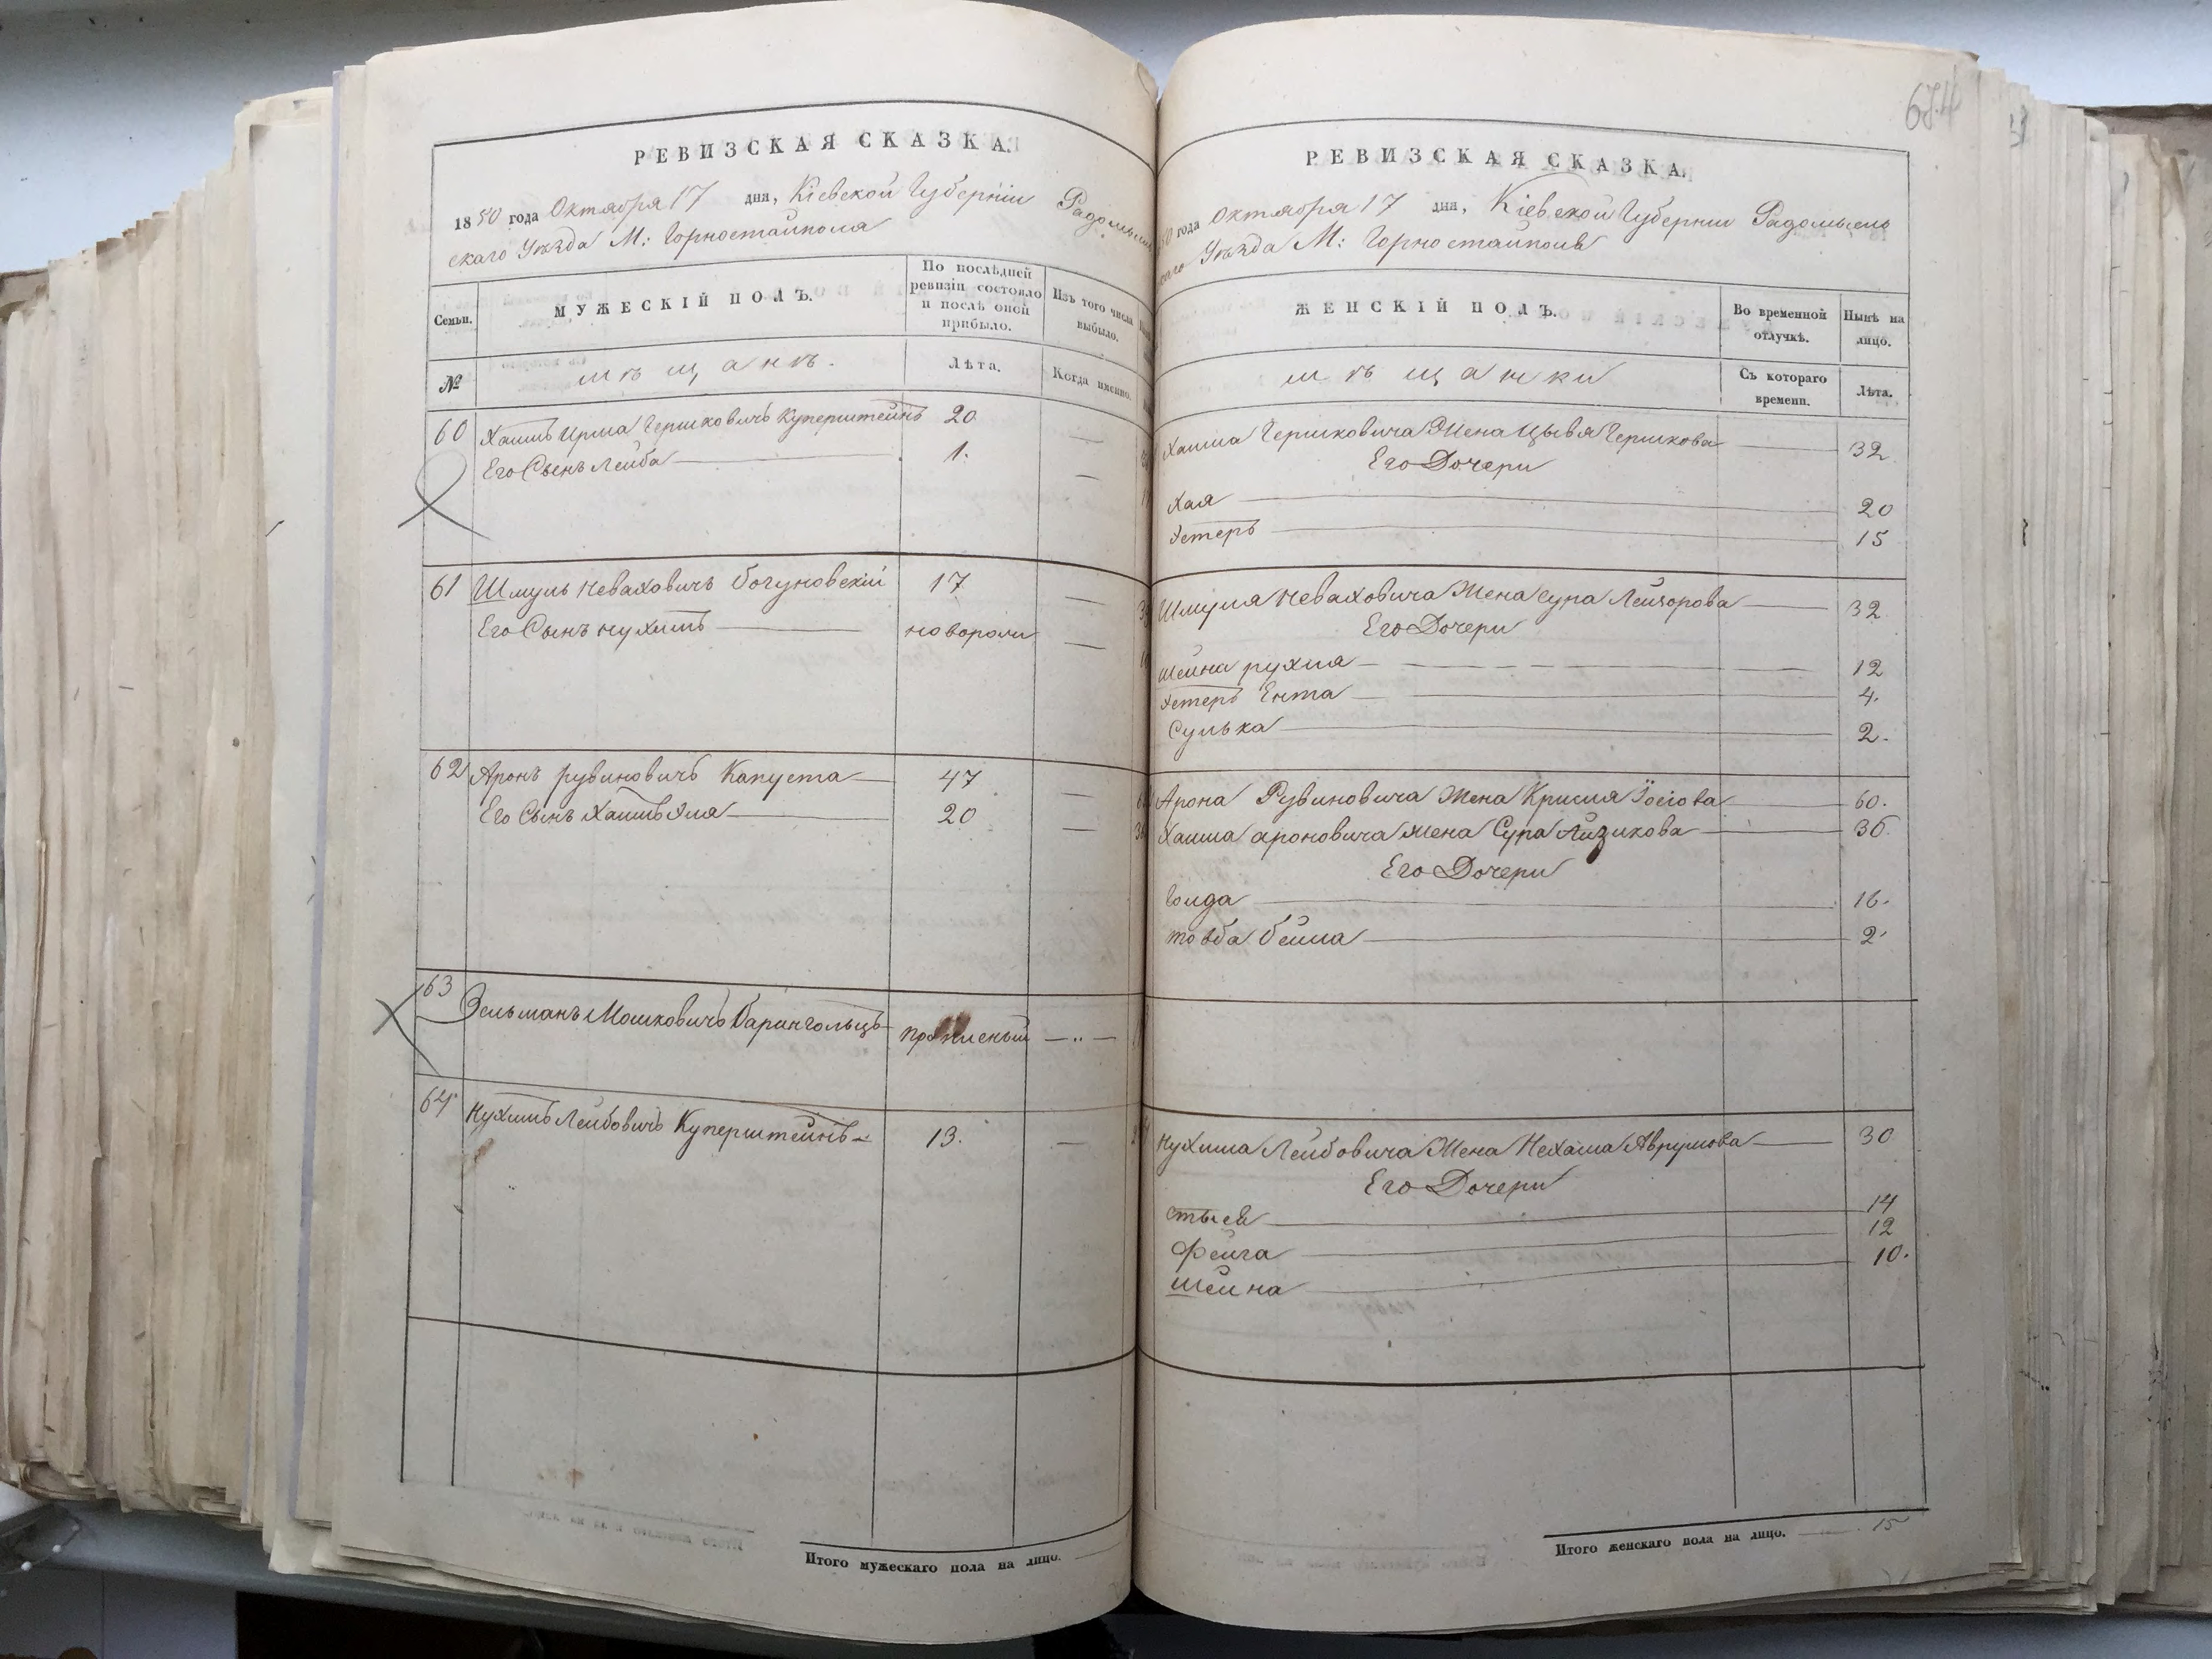 РЕВИЗСКАЯ СКАЗКА.
1850 года Октября 17 дня, Кіевской Губерніи Радомысль
скаго Уѣзда М: Горностайполя
Семьи.
МУЖЕСКІЙ ПОЛЪ.
По послѣдней ревизіи состояло и послѣ оной прибыло.
Изъ того числа выбыло.
№
мѣщанъ.
Лѣта.
Когда именно.
60 Хаимъ Ирма Гершковичъ Куперштейнъ 20
Его Сынъ Лейба 1.
61 Шмуль Неваховичъ Богуновскій 17
Его Сынъ Нухимъ новорож
62 Аронъ Рувиновичъ Капуста 47
Его Сынъ Хаимъ Эля 20
63
Зельманъ Мошковичъ Барингольцъ
64 Нухимъ Лейбовичъ Куперштейнъ 13.
Итого мужескаго пола на лицо.
674
РЕВИЗСКАЯ СКАЗКА.
50 года Октября 17 дня, Кіевской Губерніи Радомысль
скаго Уѣзда М: Горностайполя
ЖЕНСКІЙ ПОЛЪ.
Во временной отлучкѣ.
Нынѣ на лицо.
мѣщанки
Съ котораго времени.
Лѣта.
Хаима Гершковича Жена Цывя Гершкова 32
Его Дочери
Хая 20
Эстеръ 15
Шмуля Неваховича Жена Сура Лейзорова 32
Его Дочери
Шейна рухля 12
Эстеръ Ента 4.
Сулька 2.
Арона Рувиновича Жена Крисия Іосіова 60.
Хаима Ароновича Жена Сура Айзикова 36.
Его Дочери
Голда 16.
товба бейла 2
Нухима Лейбовича Жена Нехама Аврумова 30
Его Дочери
14
Фейга 12
Шейна 10.
Итого женскаго пола на лицо. 15